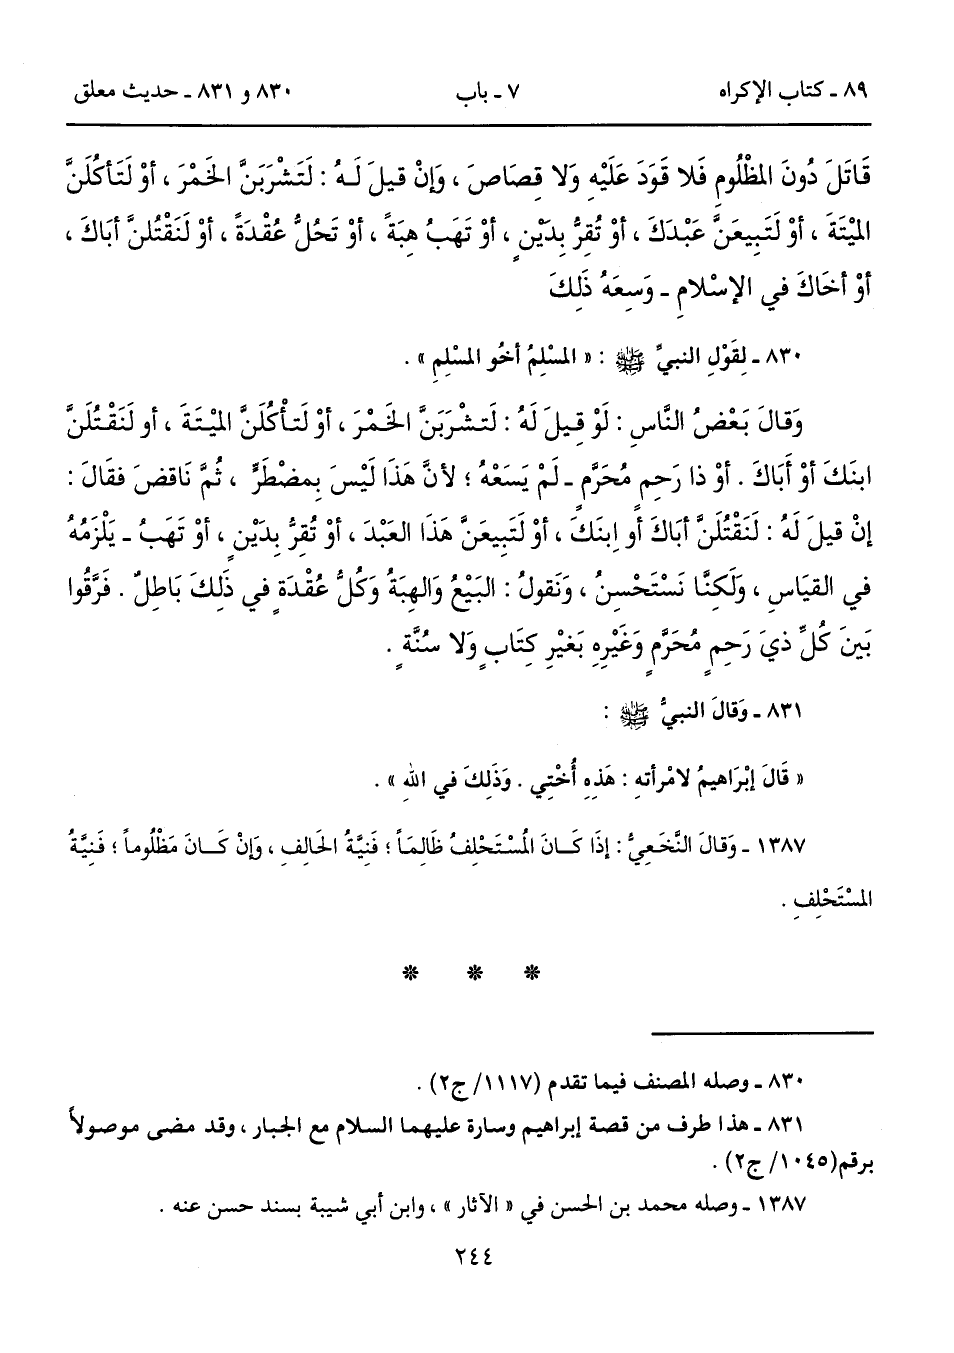 ٨٩ ـ كتاب الإكراه ٧ ـ باب ٨٣٠ و ٨٣١ ـ حديث معلق
قَاتَلَ دُونَ المَظْلُومِ فَلا قَوَدَ عَلَيْهِ وَلا قِصَاصَ ، وَإِنْ قيلَ لَـهُ : لَتَشْرَبَنَّ الخَمْرَ ، أوْ لَتَأكُلَنَّ
المَيْتَةَ ، أوْ لَتَبِيعَنَّ عَبْدَكَ ، أوْ تُقِرُّ بِدَيْنٍ ، أوْ تَهَبُ هِبَةً ، أوْ تَحُلُّ عُقْدَةً ، أوْ لَنَقْتُلنَّ أبَاكَ ،
أوْ أخَاكَ في الإسْلامِ ـ وَسِعَهُ ذَلِكَ
٨٣٠ ـ لِقَوْلِ النبيِّ ﷺ : « المسْلِمُ أخُو المسْلِمِ » .
وَقَالَ بَعْضُ النَّاسِ : لَوْ قِيلَ لَهُ : لَتَشْرَبَنَّ الخَمْرَ ، أوْ لَتأْكُلَنَّ الميْتَةَ ، أو لَنَقْتُلَنَّ
ابنَكَ أوْ أَبَاكَ . أوْ ذا رَحِمٍ مُحَرَّمٍ ـ لَمْ يَسَعْهُ ؛ لأنَّ هَذَا لَيْسَ بِمضْطَرٍّ ، ثُمَّ نَاقضَ فقَالَ :
إنْ قيلَ لَهُ : لَنَقْتُلَنَّ أبَاكَ أو ابنَكَ ، أوْ لَتَبِيعَنَّ هَذَا العَبْدَ ، أوْ تُقِرُّ بِدَيْنٍ ، أوْ تَهَبُ ـ يَلْزَمُهُ
في القيَاسِ ، وَلَكِنَّا نَسْتَحْسِنُ ، وَنَقولُ : البَيْعُ وَالهِبَةُ وَكُلُّ عُقْدَةٍ في ذَلِكَ بَاطِلٌ . فَرَّقُوا
بَينَ كُلِّ ذيَ رَحِمٍ مُحَرَّمٍ وَغَيْرِهِ بَغَيْرِ كِتَابٍ وَلا سُنَّةٍ .
٨٣١ ـ وَقالَ النبيُّ ﷺ :
« قَالَ إبْرَاهيمُ لامْرأتهِ : هَذِهِ أُخْتِي . وَذَلِكَ في اللهِ » .
١٣٨٧ ـ وَقالَ النَّخَعِيُّ : إذَا كَـانَ المُسْتَحْلِفُ ظَالِمَاً ؛ فَنِيَّةُ الحَالِفِ ، وَإنْ كَـانَ مَظْلُوماً ؛ فَنِيَّةُ
المسْتَحْلِفِ .
* * *
٨٣٠ ـ وصله المصنف فيما تقدم (١١١٧/ ج٢) .
٨٣١ ـ هذا طرف من قصة إبراهيم وسارة عليهما السلام مع الجبار ، وقد مضى موصولاً
برقم (١٠٤٥/ ج٢) .
١٣٨٧ ـ وصله محمد بن الحسن في « الآثار » ، وابن أبي شيبة بسند حسن عنه .
٢٤٤